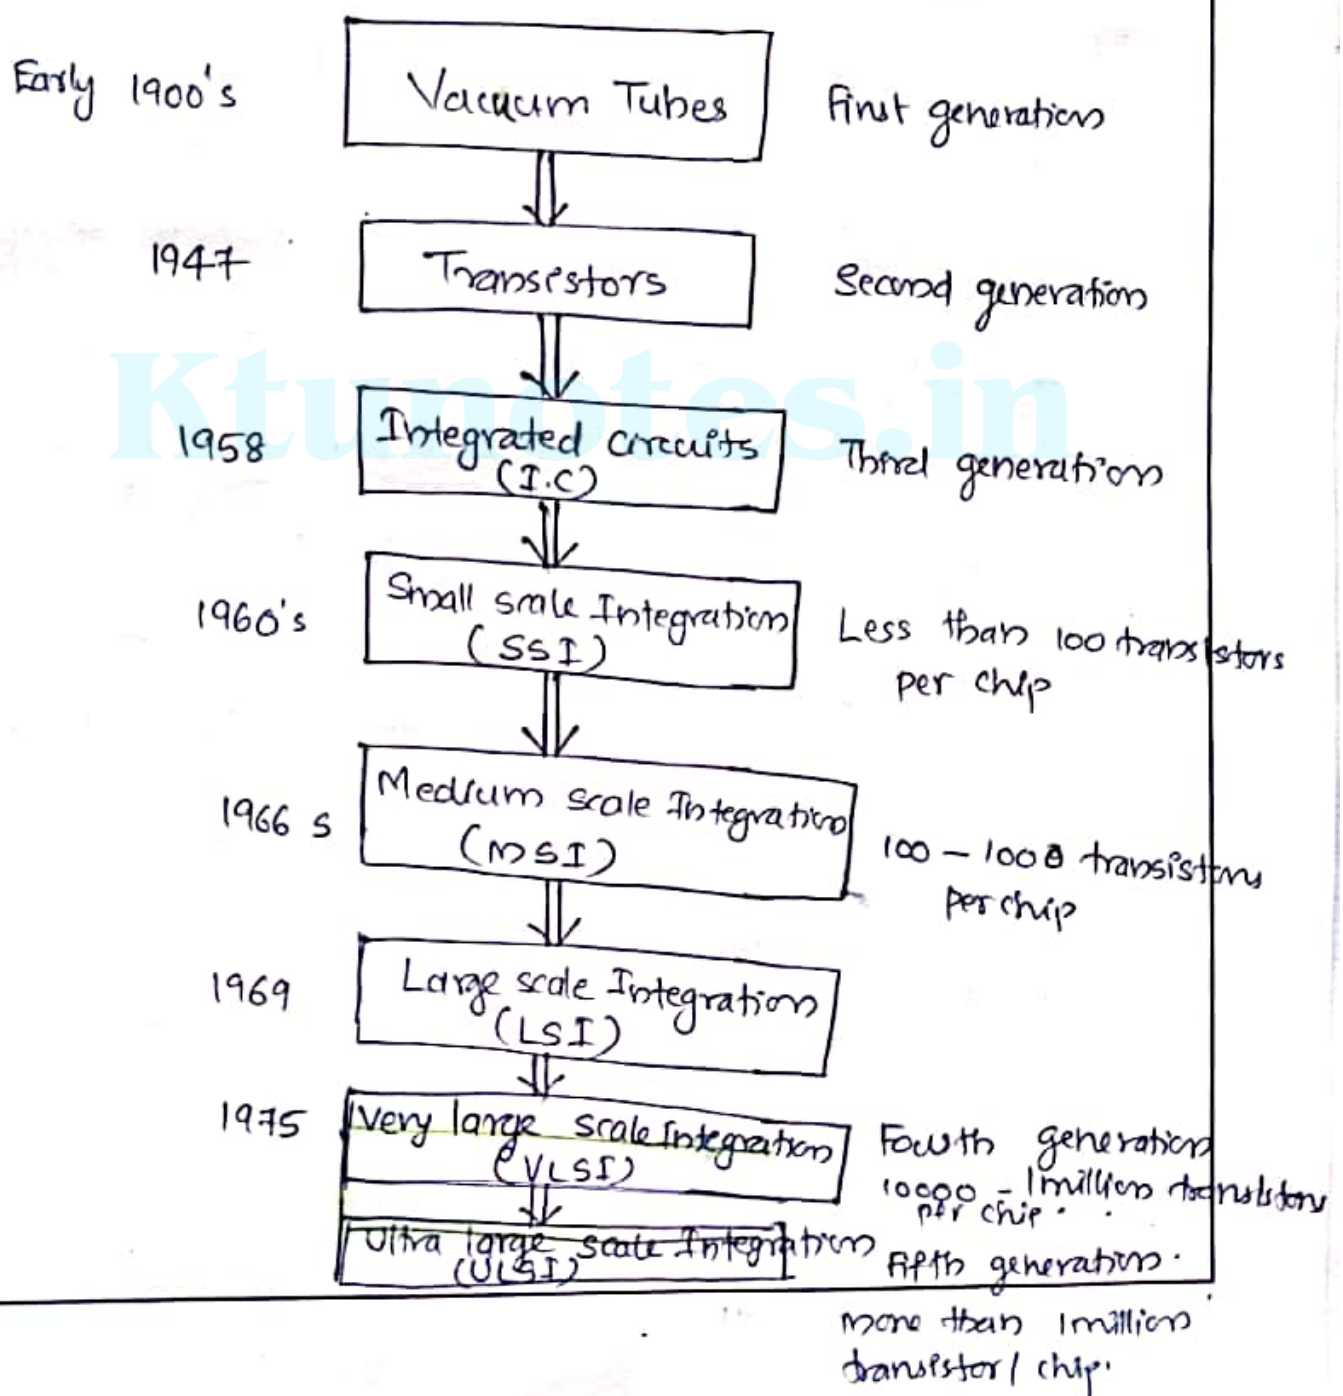 Early 1900's
Vacuum Tubes
First generation
1947
Transistors
Second generation
Ktunotes.in
1958
Integrated circuits
(I.C)
Third generation
1960's
Small scale Integration
(SSI)
Less than 100 transistors
per chip
1966 s
Medium scale Integration
(MSI)
100 - 1000 transistors
per chip
1969
Large scale Integration
(LSI)
1975
Very large scale Integration
(VLSI)
Fourth generation
10000 - 1million transistors
per chip.
Ultra large scale Integration
(ULSI)
Fifth generation.
more than 1million
transistor/ chip.